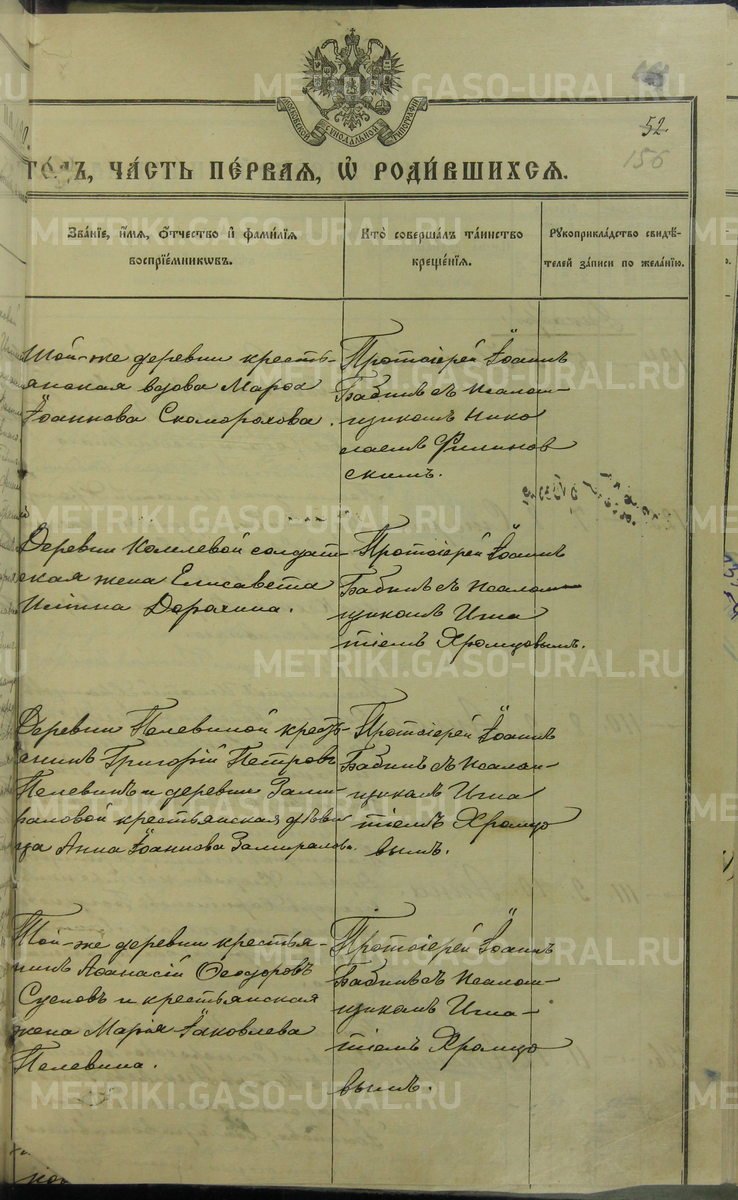 МОСКОВСКОЙ СѴНОДАЛЬНОЙ ТИПОГРАФІИ
52
156
ГО́ДЪ, ЧА́СТЬ ПЕ́РВАЯ, Ѡ҆ РОДИ́ВШИХСЯ.
Зва́нїе, и҆́мя, ѻ҆́тчество и҆ фами́лїя
воспрїе́мникѡвъ.
Кто̀ соверша́лъ та́инство
креще́нїѧ.
Рꙋкоприкла́дство свидѣ́-
телей за́писи по жела́нїю.
Той-же деревни кресть-
янская вдова Марѳа
Іоаннова Скоморохова.
Протоіерей Іоаннъ
Бабинъ съ псалом-
щикомъ Нико
лаемъ Филинов
скимъ.
Деревни Копелевой солдат-
ская жена Елисавета
Дорохина.
Протоіерей Іоаннъ
Бабинъ съ псалом-
щикомъ Игна
тіемъ Хромцовымъ.
Деревни Пелевиной кресть-
янинъ Григорій Петровъ
Пелевинъ и деревни Зами-
раловой крестьянская дѣви-
ца Анна Іоаннова Замиралова.
Протоіерей Іоаннъ
Бабинъ съ псалом-
щикомъ Игна
тіемъ Хромцо
вымъ.
Той-же деревни крестья-
нинъ Аѳанасій Ѳеодоровъ
Сусловъ и крестьянская
жена Марія Іаковлева
Пелевина.
Протоіерей Іоаннъ
Бабинъ съ псалом-
щикомъ Игна-
тіемъ Хромцо
вымъ.
METRIKI.GASO-URAL.RU